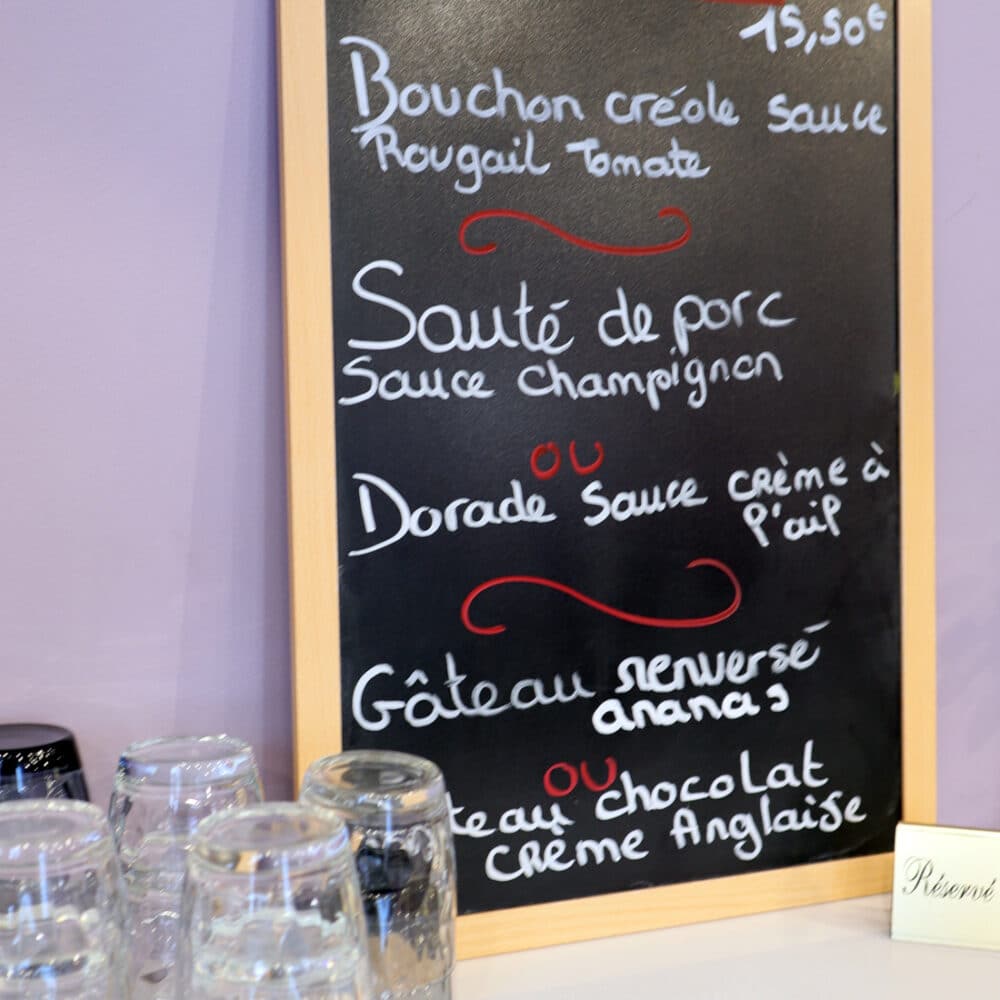 15,50€
Bouchon créole sauce
Rougail Tomate
Sauté de porc
Sauce champignon
OU
Dorade Sauce crème à
l'ail
Gâteau renversé
ananas
OU
teau chocolat
crème Anglaise
Réservé